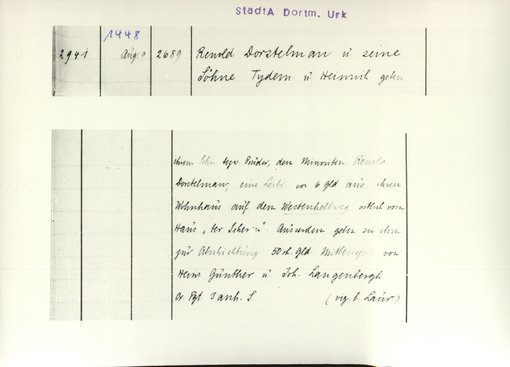 StadtA Dortm. Urk
1448
2941 Aug. 9 2689 Renold Dorstelman u seine
Söhne Tydem u Heinrich geben
ihrem Sohn bzw. Bruder, dem Minoriten Renold
Dorstelman, eine Leib von 6 Gld aus ihrem
Wohnhaus auf dem Westenhellweg östlich vom
Haus "ter Scher". Ausserdem geben sie ihm
zur Abschichtung 50 rh. Gld
Heinr Günther u Joh. Langenbergh
Or. Pgt. 3 anh. S. (vig. b. Laur)